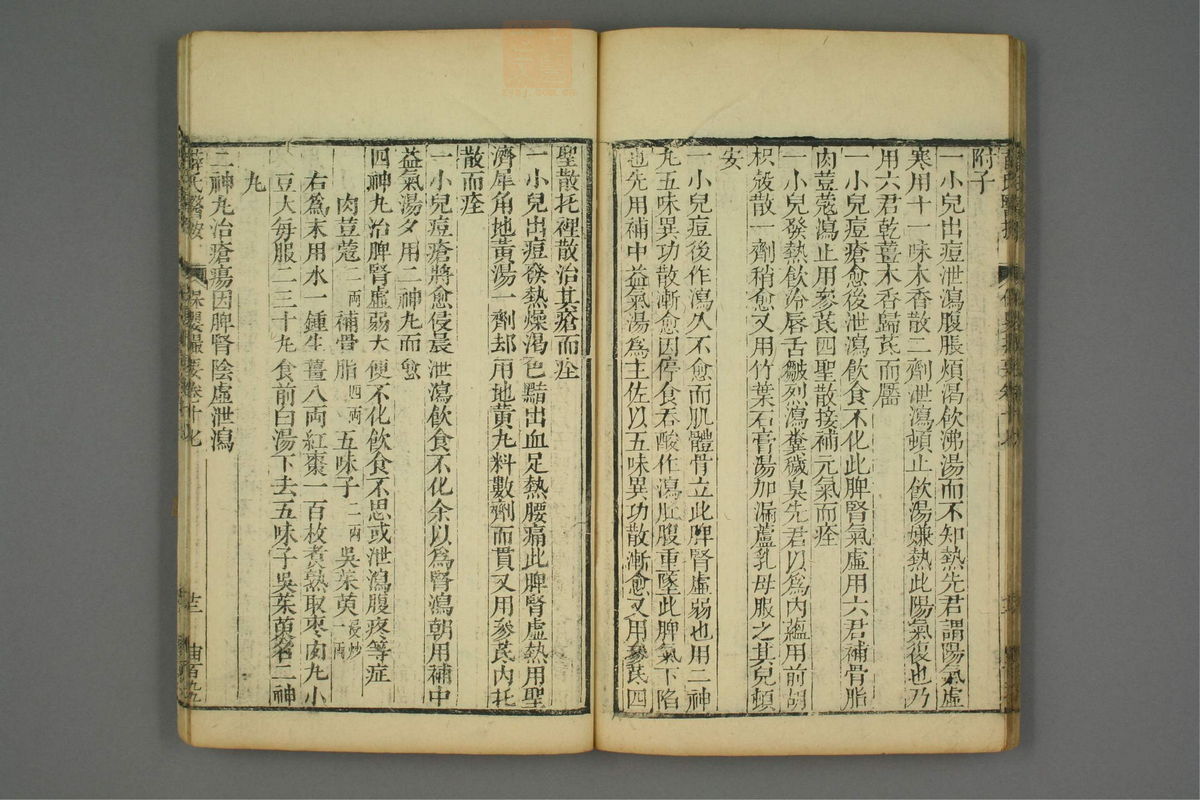 附子
一小兒出痘泄瀉腹脹煩渴飲沸湯而不知熱先君謂陽氣虛
寒用十一味木香散二劑泄瀉頓止飲湯嫌熱此陽氣復也乃
用六君乾薑木香歸芪而靨
一小兒痘瘡愈後泄瀉飲食不化此脾腎氣虛用六君補骨脂
肉荳蔻瀉止用參芪四聖散接補元氣而痊
一小兒發熱飲冷唇舌皺烈瀉糞穢臭先君以爲內蘊用前胡
枳殼散一劑稍愈又用竹葉石膏湯加漏蘆乳母服之其兒頓
安
一小兒痘後作瀉久不愈而肌體骨立此脾腎虛弱也用二神
丸五味異功散漸愈因停食吞酸作瀉肚腹重墜此脾氣下陷
也先用補中益氣湯爲主佐以五味異功散漸愈又用參芪四
聖散托裡散治其瘡而痊
一小兒出痘發熱燥渴色黯出血足熱腰痛此脾腎虛熱用聖
濟犀角地黃湯一劑却用地黃丸料數劑而貫又用參芪內托
散而痊
一小兒痘瘡將愈侵晨泄瀉飲食不化余以爲腎瀉朝用補中
益氣湯夕用二神丸而愈
四神丸治脾腎虛弱大便不化飲食不思或泄瀉腹疼等症
肉荳蔻二兩補骨脂四兩五味子二兩吳茱萸浸炒一兩
右爲末用水一鍾生薑八兩紅棗一百枚煮熟取棗肉丸小
豆大每服二三十丸食前白湯下去五味子吳茱萸名二神
丸
二神丸治瘡瘍因脾腎陰虛泄瀉
薛氏醫按 保嬰撮要卷十七